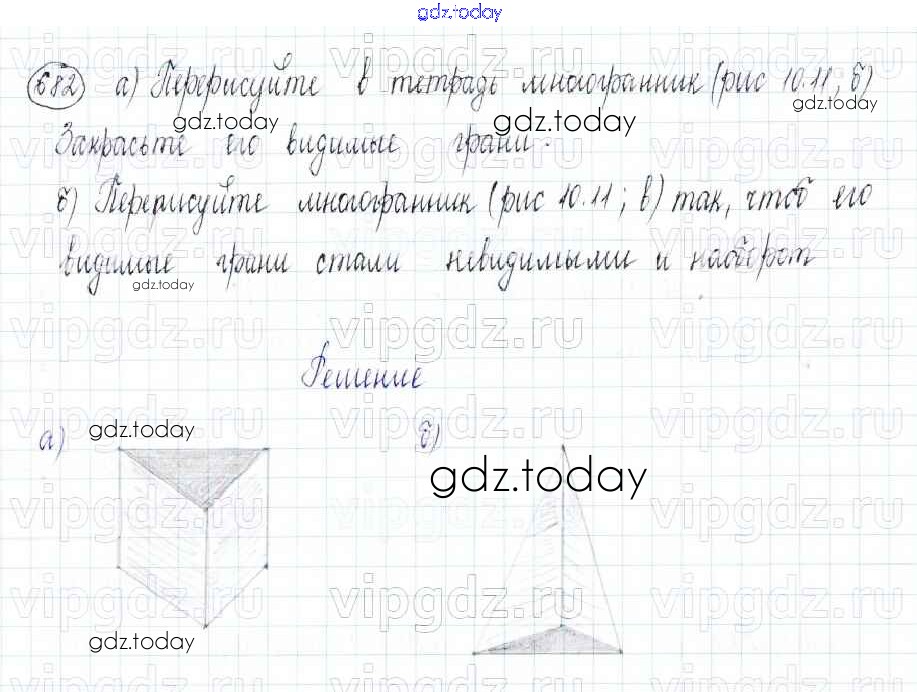 gdz.today
682 а) Перерисуйте в тетрадь многогранник (рис 10.11, б)
gdz.today gdz.today gdz.today
Закрасьте его видимые грани.
б) Переписуйте многогранник (рис 10.11; в) так, чтоб его
видимые грани стали невидимыми и наоборот
gdz.today
vipgdz.ru vipgdz.ru vipgdz.ru
Решение
а) gdz.today б)
gdz.today
vipgdz.ru vipgdz.ru vipgdz.ru
gdz.today